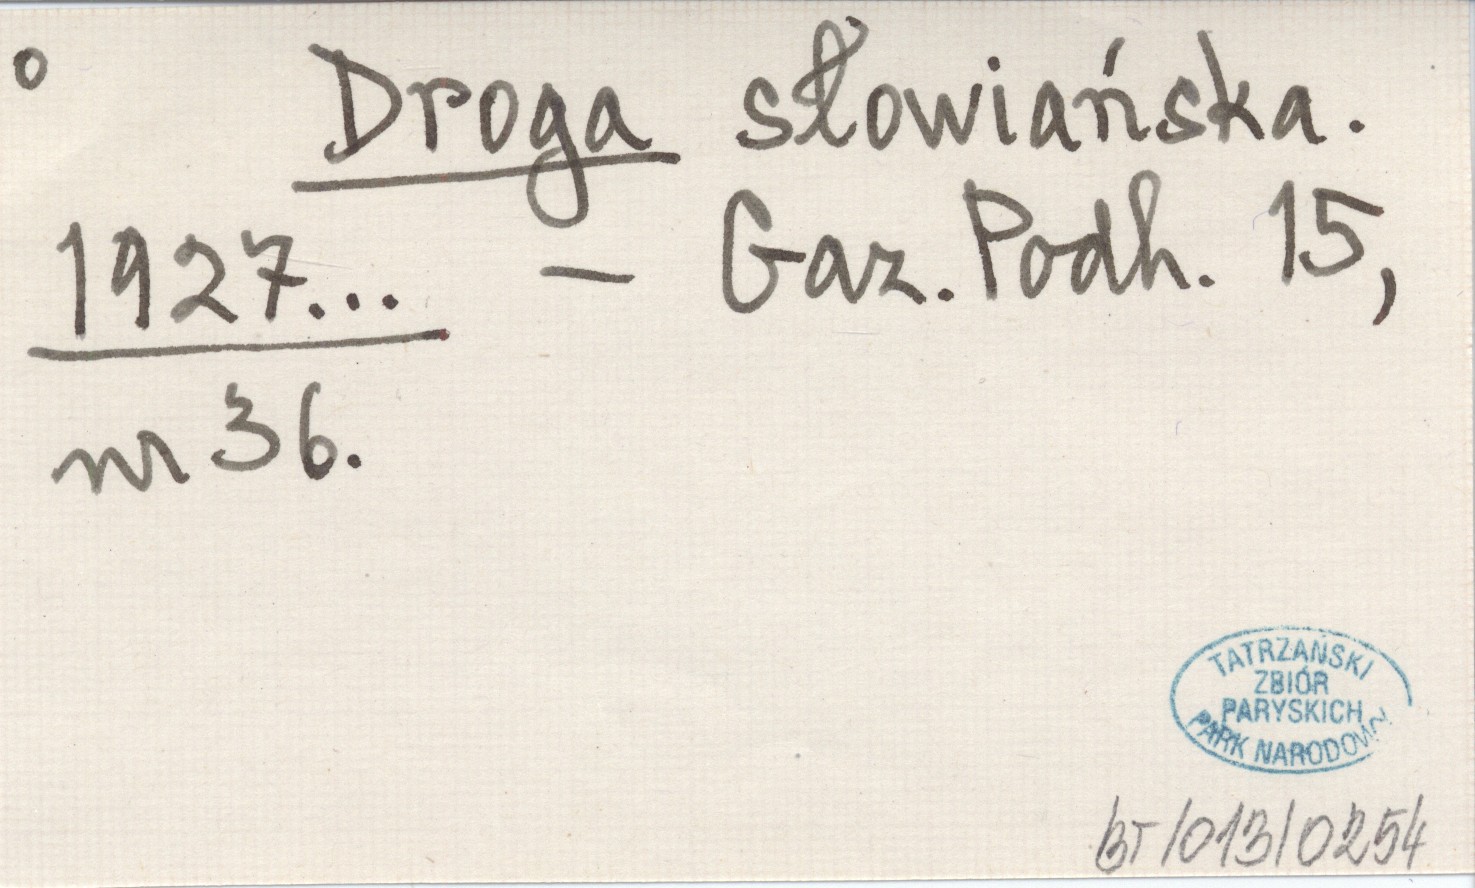 o Droga słowiańska.
1927... – Gaz. Podh. 15,
nr 36.
TATRZAŃSKI
ZBIÓR
PARYSKICH
PARK NARODOWY
BT/013/0254